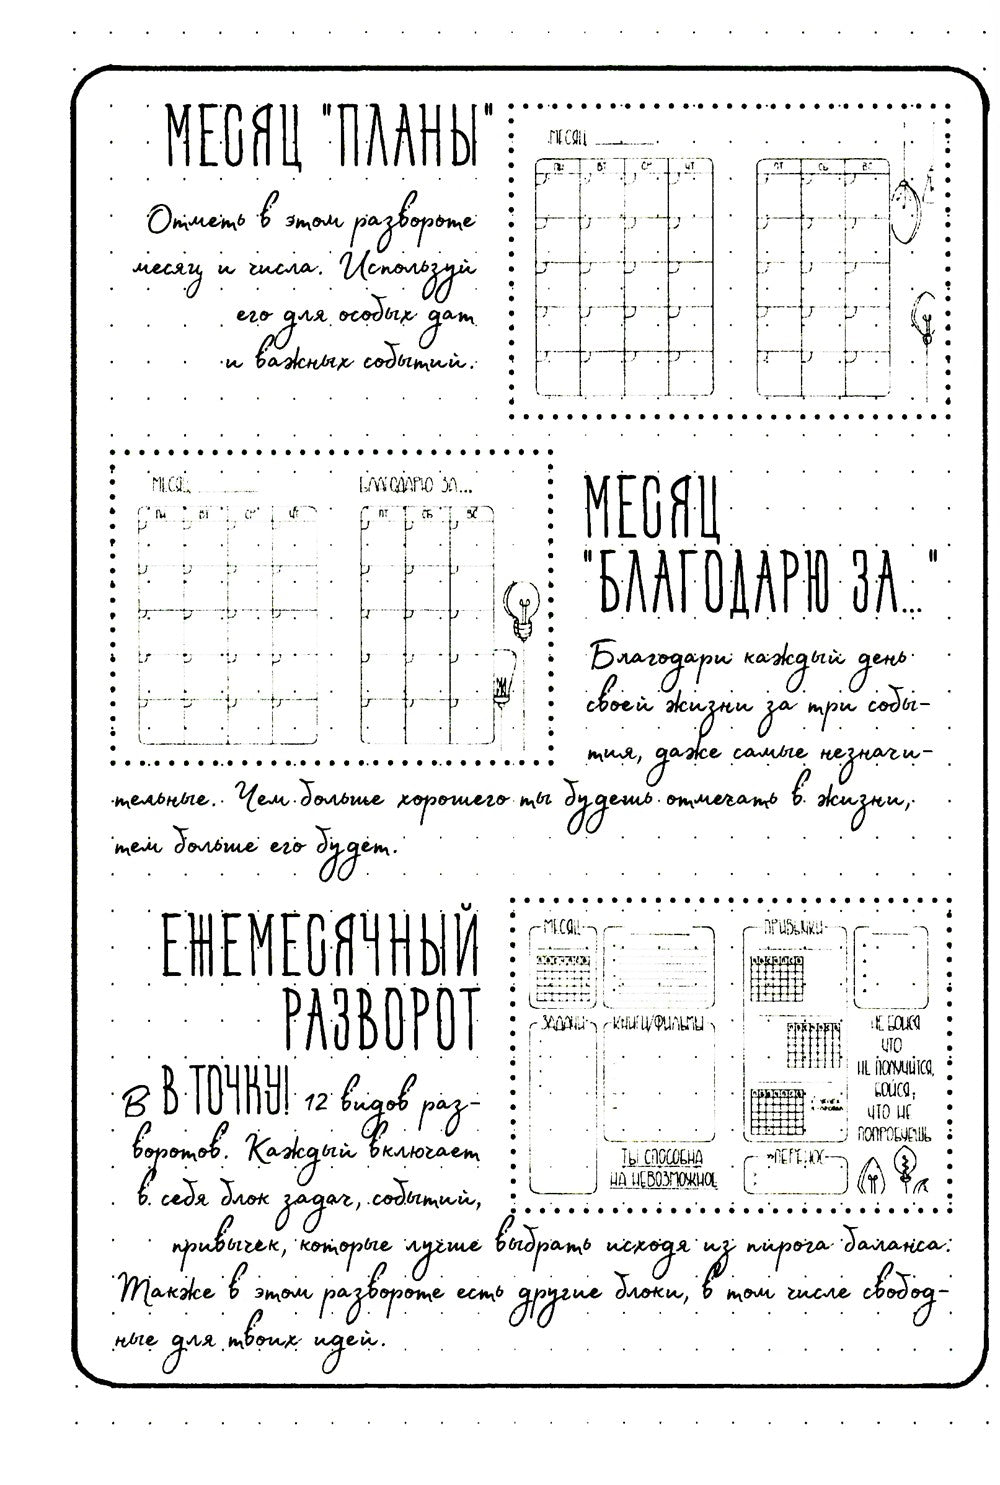 МЕСЯЦ "ПЛАНЫ"
Отметь в этом развороте
месяц и числа. Используй
его для особых дат
и важных событий.
МЕСЯЦ
ПН ВТ СР ЧТ ПТ СБ ВС
МЕСЯЦ БЛАГОДАРЮ ЗА...
ПН ВТ СР ЧТ ПТ СБ ВС
МЕСЯЦ
"БЛАГОДАРЮ ЗА..."
Благодари каждый день
своей жизни за три собы-
тия, даже самые незначи-
тельные. Чем больше хорошего ты будешь отмечать в жизни,
тем больше его будет.
ЕЖЕМЕСЯЧНЫЙ
РАЗВОРОТ
В В ТОЧКУ! 12 видов раз-
воротов. Каждый включает
в себя блок задач, событий,
привычек, которые лучше выбрать исходя из пирога баланса.
Также в этом развороте есть другие блоки, в том числе свобод-
ные для твоих идей.
МЕСЯЦ ПРИВЫЧКИ
ЗАДАЧИ КНИГИ/ФИЛЬМЫ
НЕ БОЙСЯ
ЧТО
НЕ ПОЛУЧИТСЯ,
БОЙСЯ,
ЧТО НЕ
ПОПРОБУЕШЬ
ТЫ СПОСОБНА
НА НЕВОЗМОЖНОЕ
»ПЕРЕНОС